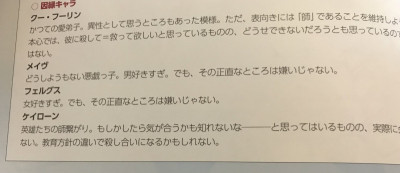 ○ 因縁キャラ
クー・フーリン
かつての愛弟子。異性として思うところもあった模様。ただ、表向きには「師」であることを維持しよ
本心では、彼に殺して＝救って欲しいと思っているものの、どうせできないだろうとも思っているの
はない。
メイヴ
どうしようもない悪戯っ子。男好きすぎ。でも、その正直なところは嫌いじゃない。
フェルグス
女好きすぎ。でも、その正直なところは嫌いじゃない。
ケイローン
英雄たちの師繋がり。もしかしたら気が合うかも知れないな―――と思ってはいるものの、実際に
ない。教育方針の違いで殺し合いになるかもしれない。